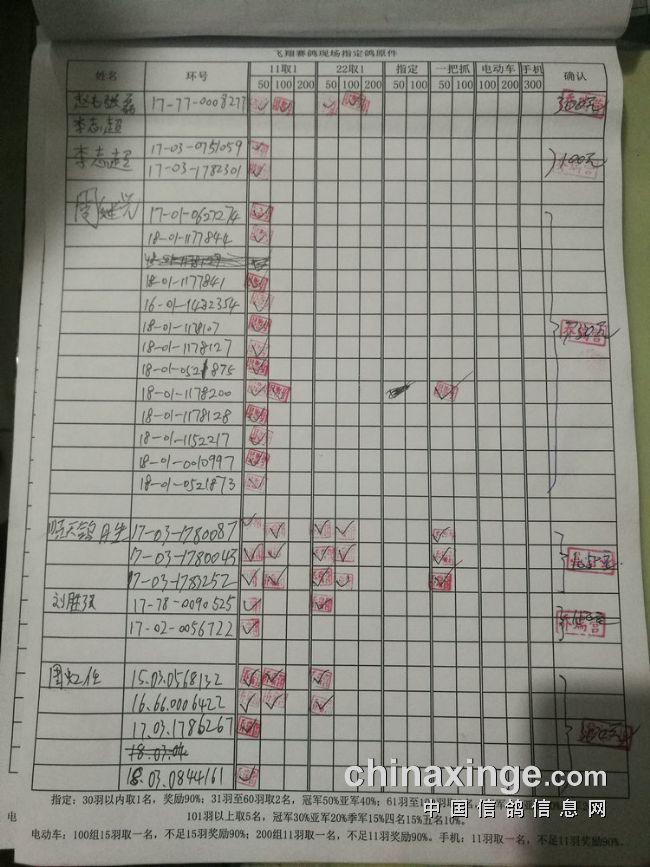 飞翔赛鸽现场指定鸽原件
姓名 环号 11取1 22取1 指定 一把抓 电动车 手机 确认
50 100 200 50 100 200 50 100 50 100 100 200 300
17-77-0008277
李志超
李志超 17-03-0751059
17-03-1782301 100元
17-01-0627274
18-01-1177844
18-01-1177841
16-01-1482354
18-01-1178107
18-01-1178127
18-01-0521875
18-01-1178200
18-01-1178128
18-01-1152217
18-01-0010997
18-01-0521873
17-03-1780087
17-03-1780043
17-03-1783252
刘胜汉 17-78-0090525
17-02-0056722
15.03.0568132
16.66.0006422
17.03.1786267
18.03.04
18.03.0844161
指定:30羽以内取1名,奖励90%;31羽至60羽取2名,冠军50%亚军40%;61羽至
101羽以上取5名,冠军30%亚军20%季军15%四名15%五名10%。
电
电动车:100组15羽取一名,不足15羽奖励90%;200组11羽取一名,不足11羽奖励90%。手机:11羽取一名,不足11羽奖励90%。
chinaxinge.com
中国信鸽信息网